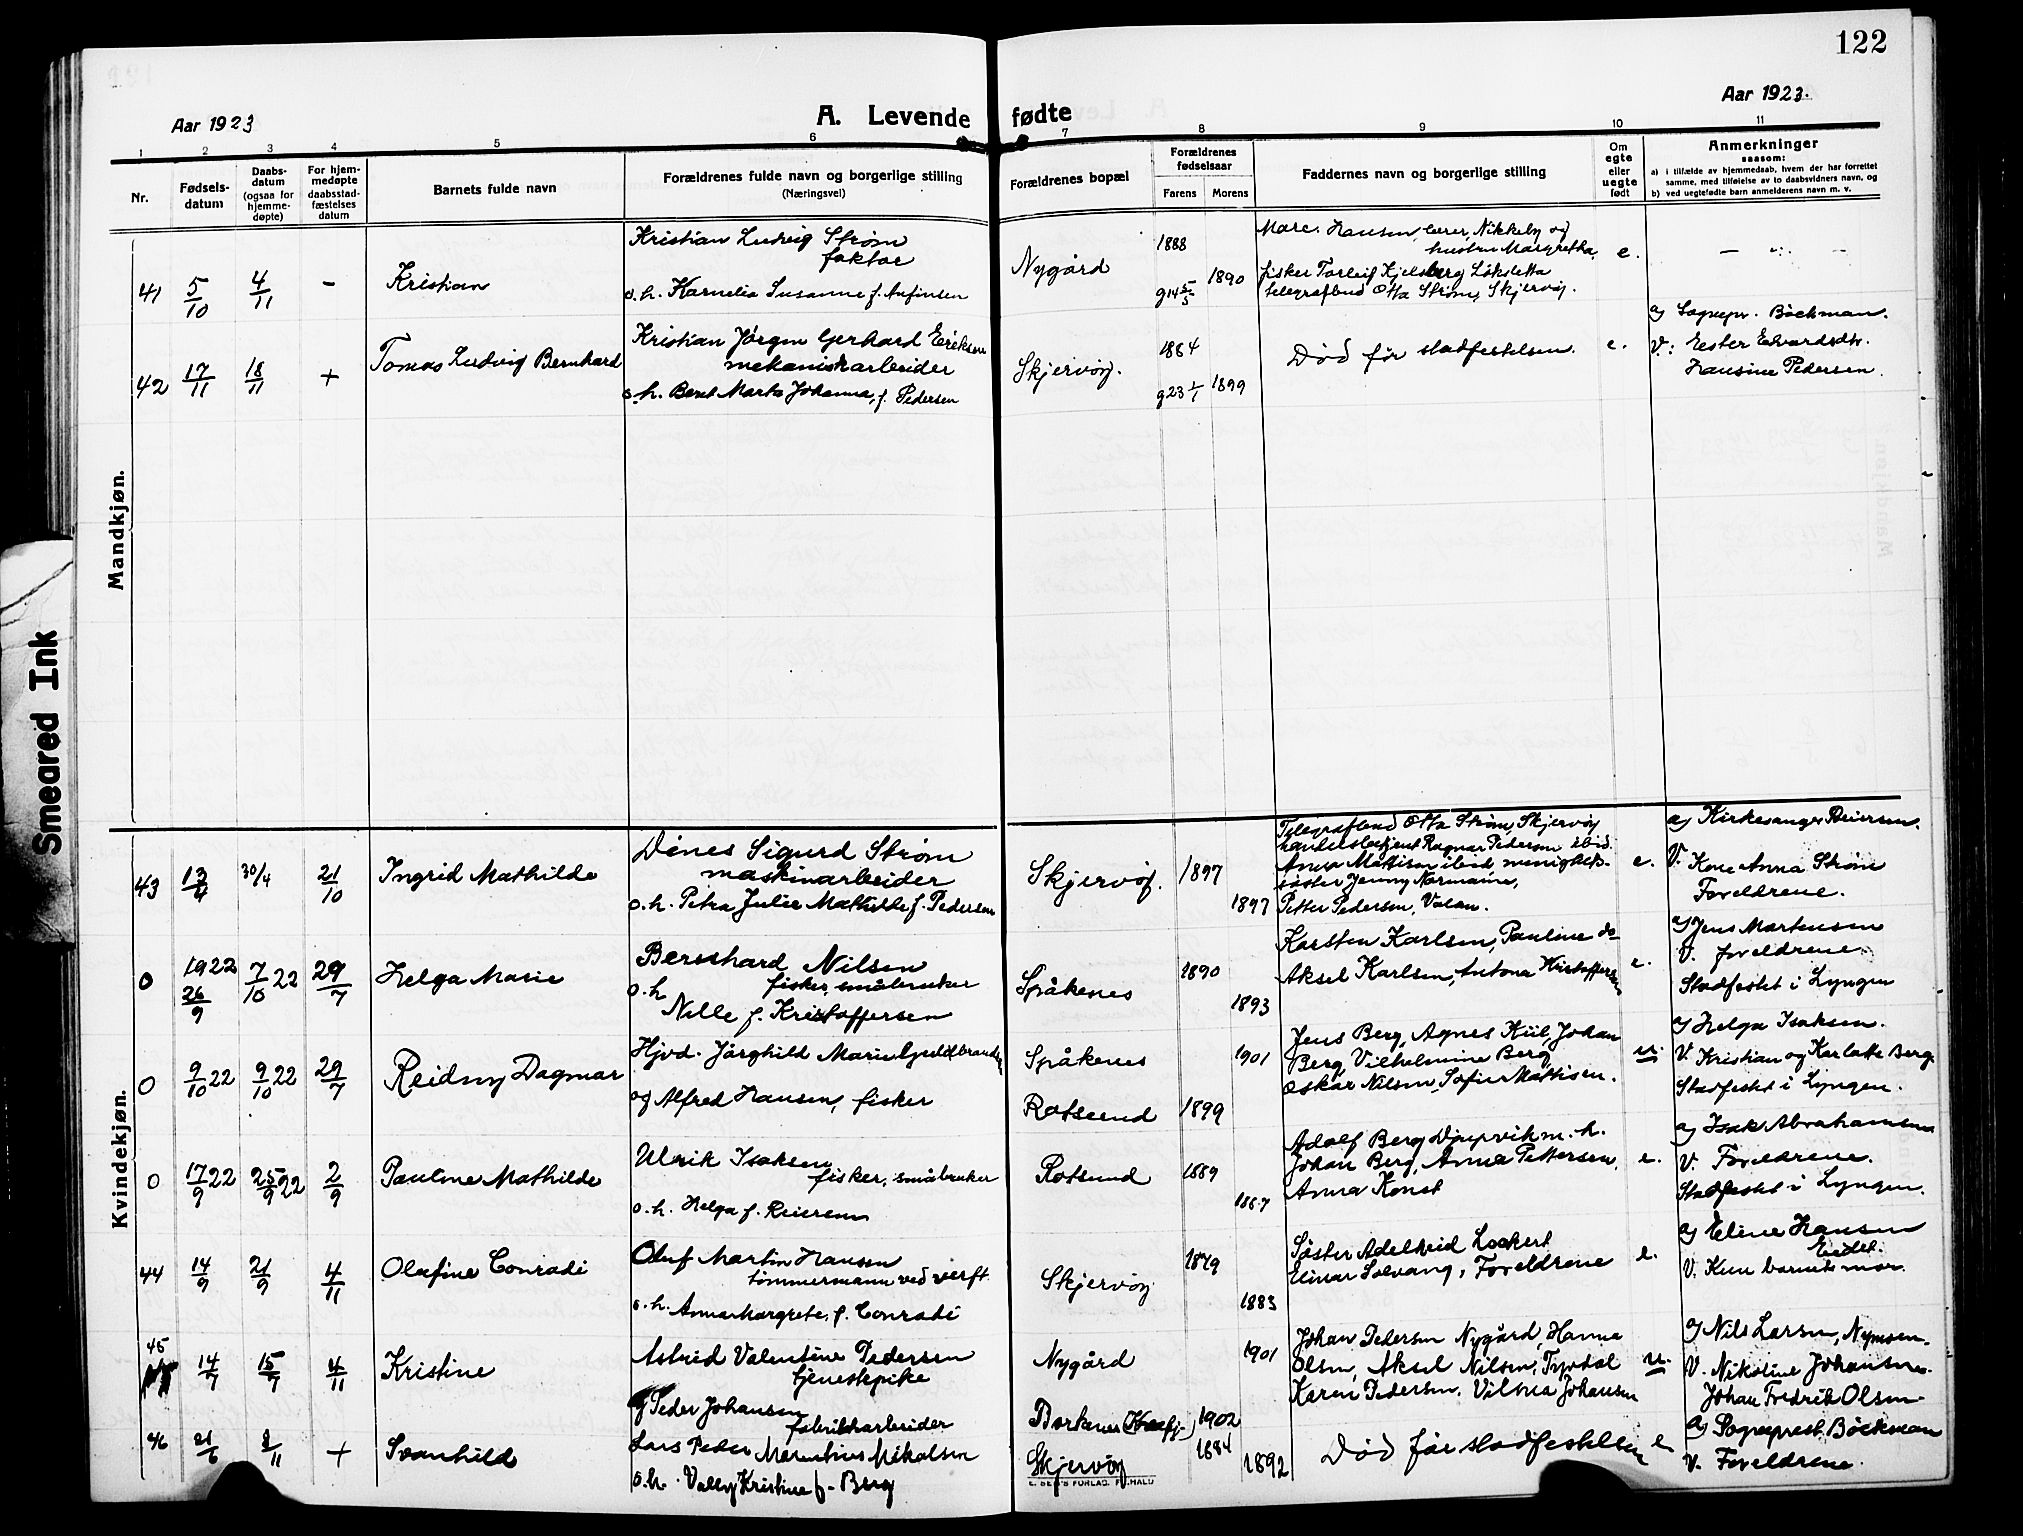 122
Aar 1923
A. Levende fødte
Aar 1923.
1 2 3 4 5 6 7 8 9 10 11
Nr.
Fødsels-
datum
Daabs-
datum
(ogsaa for
hjemme-
døpte)
For hjem-
medøpte
daabsstad-
fæstelses
datum
Barnets fulde navn
Forældrenes fulde navn og borgerlige stilling
(Næringsvei)
Forældrenes bopæl
Forældrenes
fødselsaar
Farens Morens
Faddernes navn og borgerlige stilling
Om
egte
eller
uegte
født
Anmerkninger
saasom:
a) i tilfælde av hjemmedaab, hvem der har forrettet
samme, med tilføielse av to daabsvidners navn, og
b) ved uegtefødte barn anmelderens navn m. v.
Mandkjøn.
41 5/10 4/11 - Kristian
Kristian Ludvig Strøm
faktor
o.h. Kornelia Susanne f. Anfinsen
Nygård
1888
g14 5/5 1890
Marc. Hansen, lærer, Nikkeby og
hustru Margretha,
fisker Torleif Kjelsberg Løksletta
telegrafbud Otto Strøm, Skjervøy.
e.
42 17/11 18/11 +
Tomas Ludvig Bernhard
Kristian Jørgen Gerhard Eriksen
mekanisk arbeider
o.h. Beret Marta Johanna, f. Pedersen
Skjervøy.
1884
g23 1/1 1899
Død før stadfestelsen. e.
a) Sognepr. Böckman.
V: Ester Edvardsdtr.
Hansine Pedersen.
Smeared Ink
Kvindekjøn.
43 13/4 30/4 21/10 Ingrid Mathilde
Dines Sigurd Strøm
maskinarbeider
o.h. Petra Julie Mathilde f. Pedersen
Skjervøy. 1897
1897
Telegrafbud Otto Strøm, Skjervøy
handelsbetjent Ragnar Pedersen ibid.
Anna Mattisen ibid, menighets-
søster Jenny Normann,
Petter Pedersen, Valan.
e.
a) Kirkesanger Reiersen.
V. Kone Anna Strøm
Foreldrene.
0 1922 26/9 7/10 22 29/7 Helga Marie
Bernhard Nilsen
fisker, småbruker
o.h
Nelle f. Kristoffersen
Spåkenes
1890
1893
Karsten Karlsen, Pauline do-
Aksel Karlsen, Antona Kristoffersen
e.
a) Jens Martensen
V. foreldrene.
Stadfestet i Lyngen
0 9/10 22 9/10 22 29/7 Reidny Dagmar
Hjvd. Jørghild Marie Guldbrandsen
og Alfred Hansen, fisker
Spåkenes 1901
Rotsund 1899
Jens Berg, Agnes Kiil, Johan
Berg, Vilhelmine Berg
Oskar Nilsen, Sofie Mattisen.
u.
a) Helga Isaksen.
V. Kristian og Karlotte Berg.
Stadfestet i Lyngen.
0 17/9 22 25/9 22 2/9 Pauline Mathilde
Ulrik Isaksen
fisker, småbruker
o.h. Helga f. Reiersen
Rotsund 1889
1887
Adolf Berg Djupvik m. h.
Johan Berg, Anna Pettersen,
Anna Konst
e.
a) Isak Abrahamsen
V. Foreldrene.
Stadfestet i Lyngen.
44 14/9 21/9 4/11 Olafine Conradi
Oluf Martin Hansen
tømmermann ved verft.
o.h. Anna Margrete, f. Conradi
Skjervøy
1879
1883
Søster Adelheid Lockert
Elinar Solvang, Foreldrene
e.
a) Eline Hansen
Eidet.
V. Kun barnets mor.
45 14/7 15/7 4/11 Kristine
Astrid Valentine Pedersen
tjenestepike
og Peder Johansen
fabrikkarbeider
Nygård 1901
1902
Johan Pedersen Nygård, Hanna
Olsen, Aksel Nilsen,
Karen Pedersen, Vilma Johansen
u.
a) Nils Larsen,
V. Nikoline Johansen
Johan Fredrik Olsen
46 21/6 Svanhild
+
Lars Peder Marentius Nikolsen
o.h. Valby Kristine f. Berg
Skjervøy
1884
1892
Død før stadfestelsen e
a) Sogneprest Böckman
V. Foreldrene.